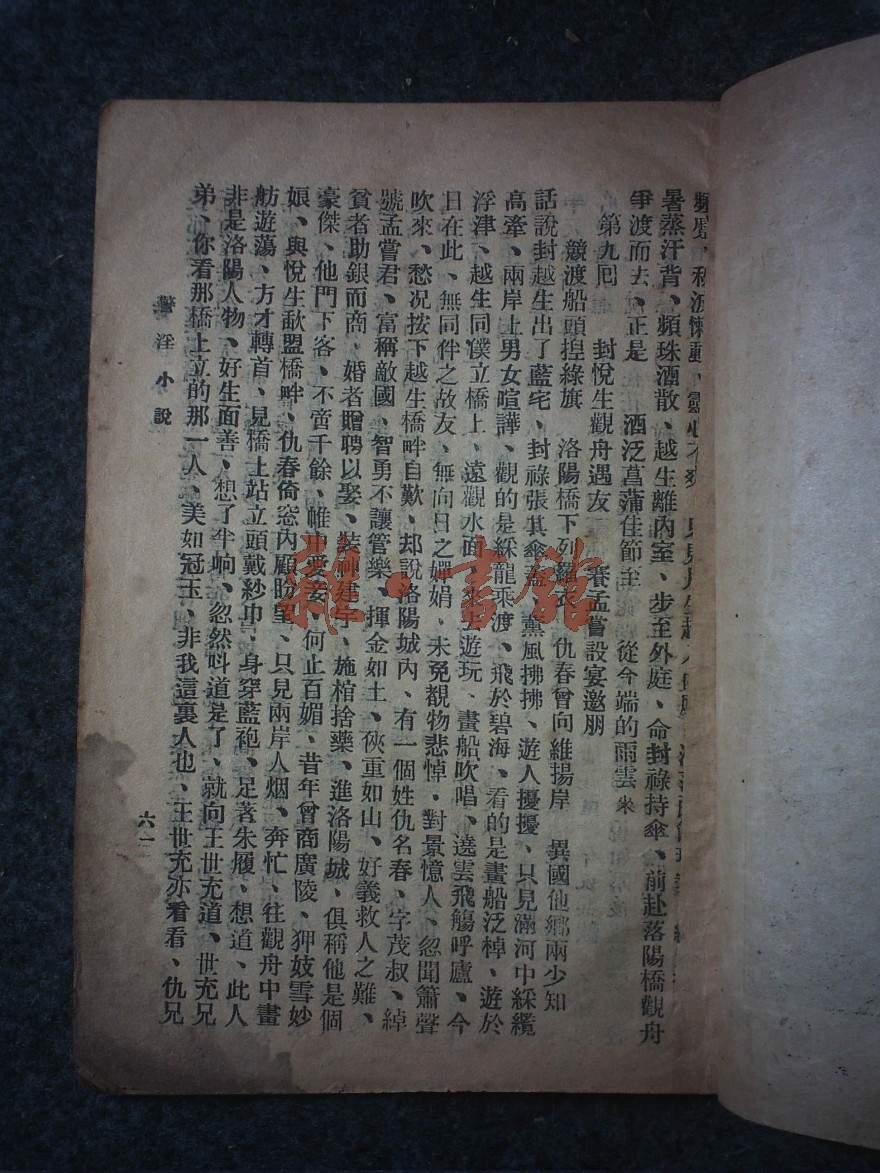 暑蒸汗背、頻珠洒散、越生離內室、步至外庭、命封祿持傘、前赴落陽橋觀舟
爭渡而去、正是　酒泛菖蒲佳節至　從今端的雨雲來
第九回　封悅生觀舟遇友　賽孟嘗設宴邀朋
競渡船頭揑綠旗　洛陽橋下列羅衣　仇春曾向維揚岸　異國他鄉兩少知
話說封越生出了藍宅、封祿張其傘蓋、薰風拂拂、遊人擾擾、只見滿河中綵纜
高牽、兩岸上男女喧譁、觀的是綵龍乘渡、飛於碧海、看的是畫船泛棹、遊於
浮津、越生同僕立橋上、遠觀水面、來上遊玩、畫船吹唱、遶雲飛觴呼廬、今
日在此、無同伴之故友、無向日之嬋娟、未免覩物悲悼．對景憶人、忽聞簫聲
吹來、愁况按下越生橋畔自歎、却說洛陽城內、有一個姓仇名春、字茂叔、綽
號孟嘗君、富稱敵國、智勇不讓管樂、揮金如土、俠重如山、好義救人之難、
貧者助銀而商、婚者贈聘以娶、裝神建宇、施棺捨藥、進洛陽城、俱稱他是個
豪傑、他門下客、不啻千餘、帷中愛妾、何止百媚、昔年曾商廣陵、狎妓雪妙
娘、與悅生歃盟橋畔、仇春倚窓內顧盼望、只見兩岸人烟、奔忙、往觀舟中畫
舫遊蕩、方才轉首、見橋上站立頭戴紗巾、身穿藍袍、足著朱履、想道、此人
非是洛陽人物、好生面善、想了半晌、忽然呌道是了、就向王世充道、世充兄
弟、你看那橋上立的那一人、美如冠玉、非我這裏人也、王世充亦看看、仇兄
警淫小說
六一
雜·書館